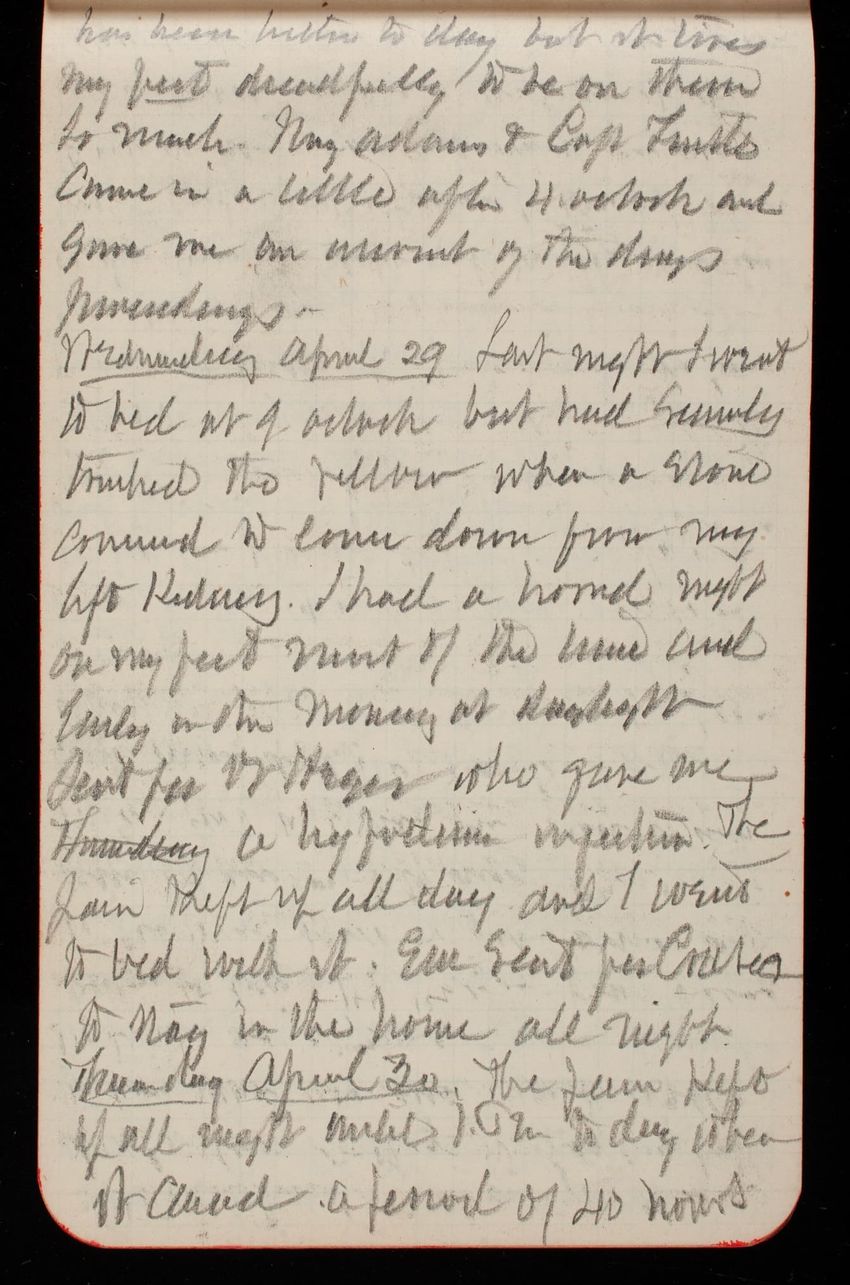 has been better to day but it tires
my feet dreadfully to be on them
so much. Maj Adams & Capt Tuttle
Came in a little after 4 oclock and
gave me an account of the days
proceedings -
Wednesday April 29 Last night I went
to bed at 9 oclock but had scarcely
touched the pillow when a stone
commenced to come down from my
left Kidney. I had a horrid night
on my feet most of the time and
Early in the Morning at daylight
Sent for Dr Hager who gave me
Thursday a hypodermic injection. The
pain Kept up all day and I went
to bed with it. Em sent for
to stay in the house all night.
Thursday April 30. The pain Kept
up all night until P.M. to day when
it ceased a period of 40 hours